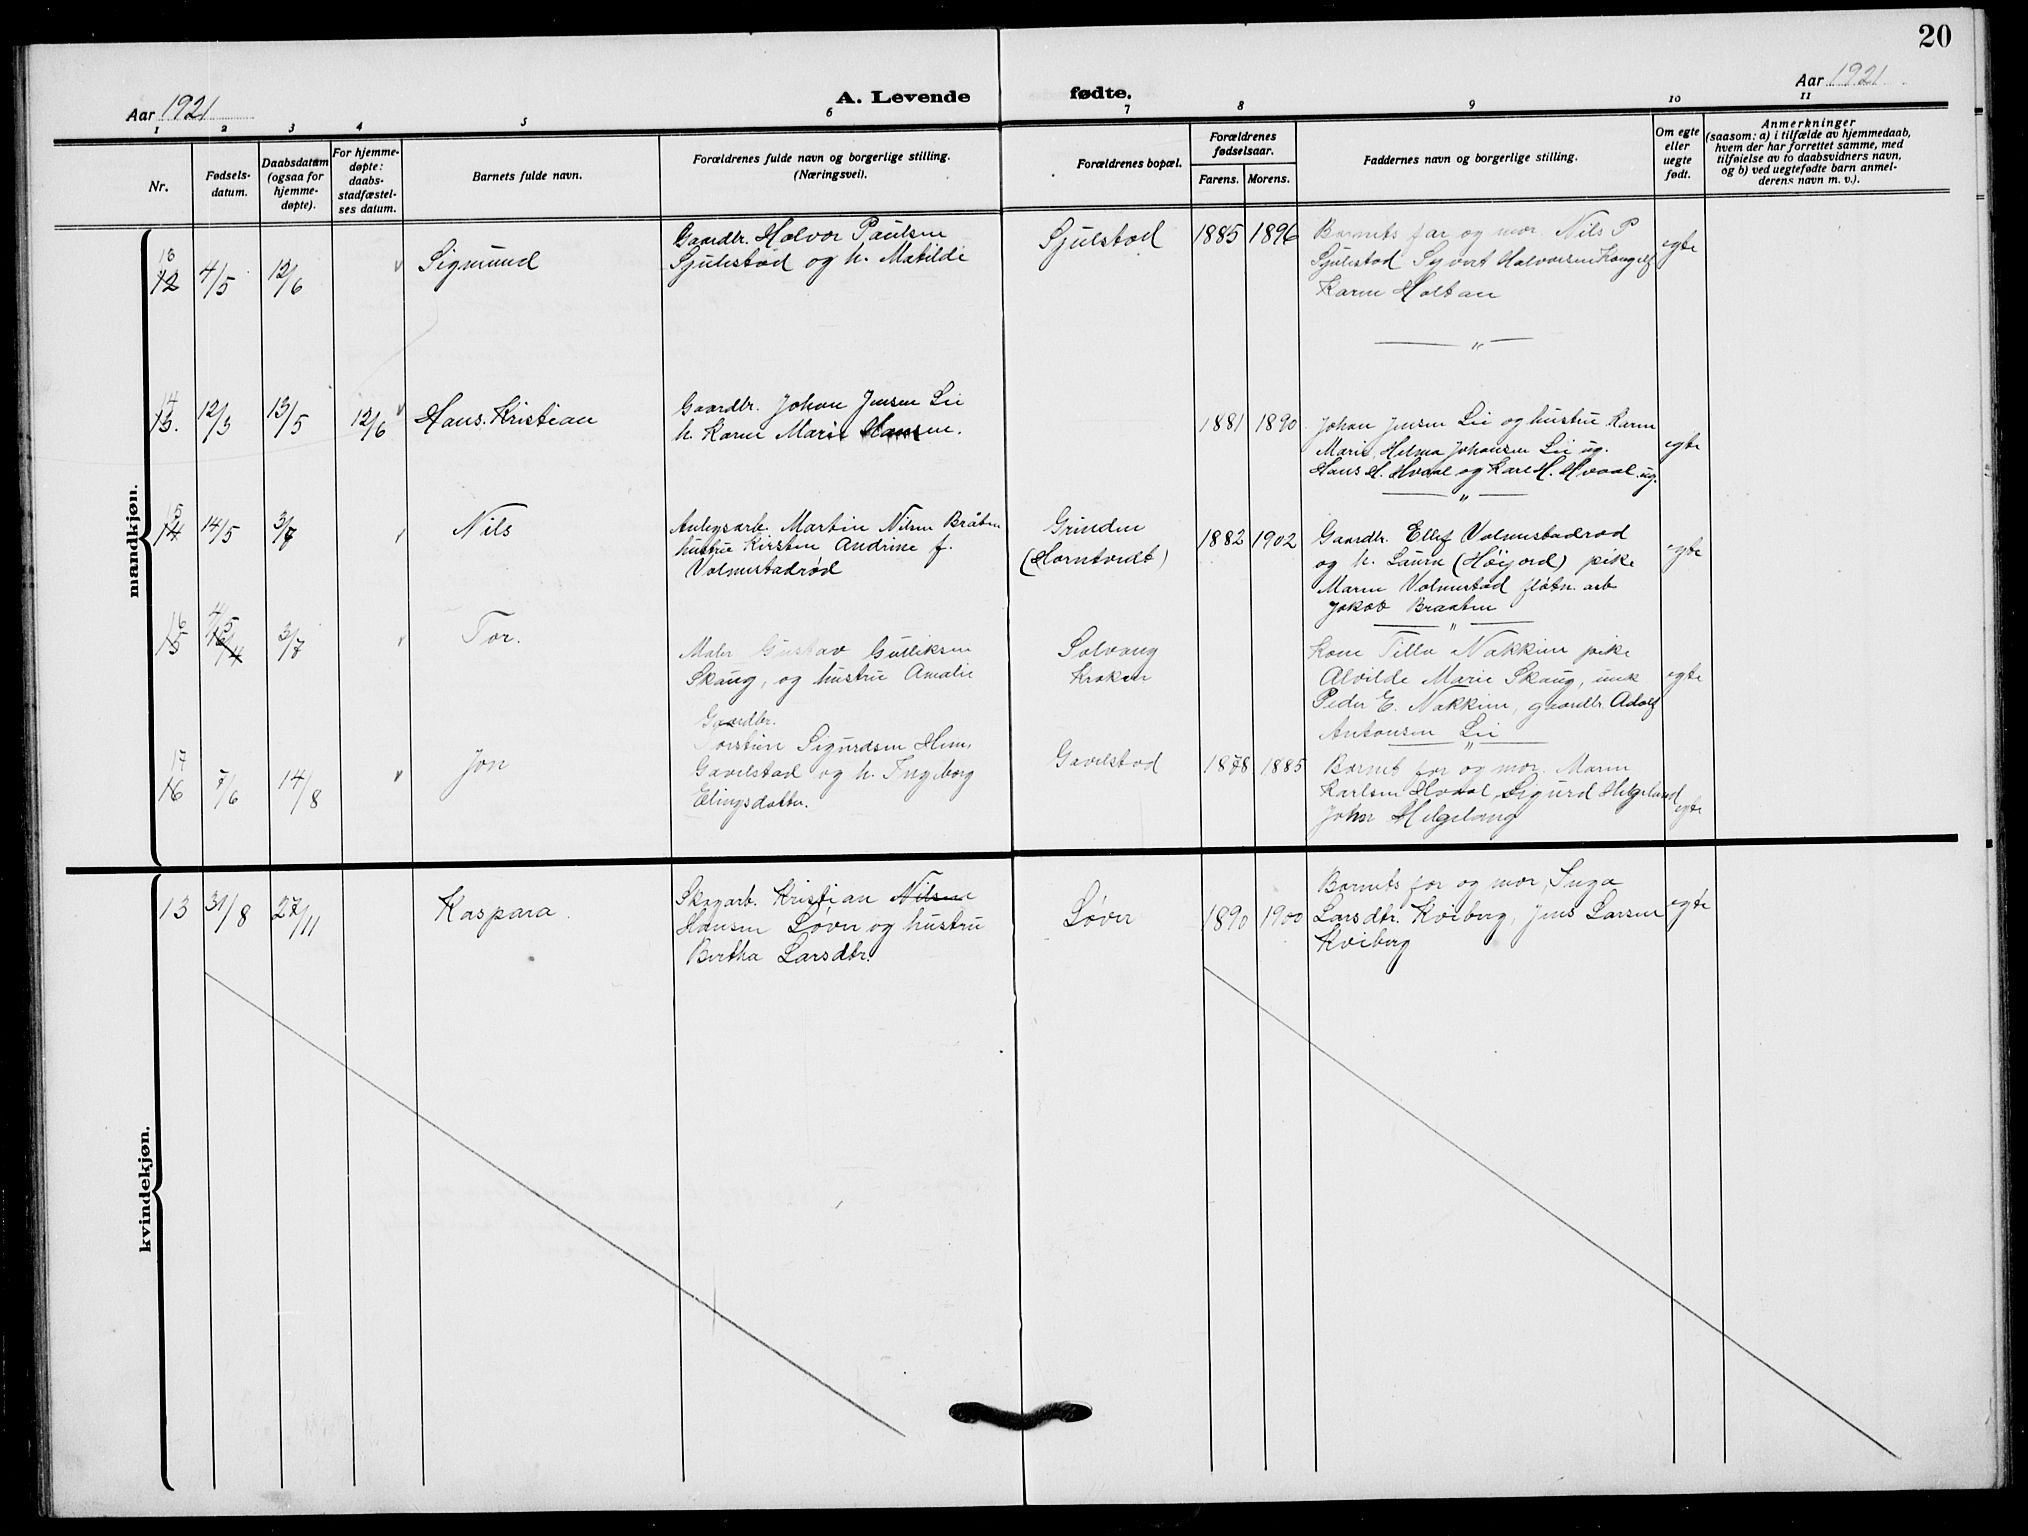 20
Aar 1921
A. Levende
fødte.
Aar 1921
1 2 3 4 5 6 7 8 9 10 11
Nr.
Fødsels-
datum.
Daabsdatum
(ogsaa for
hjemme-
døpte).
For hjemme-
døpte:
daabs-
stadfæstel-
ses datum.
Barnets fulde navn.
Forældrenes fulde navn og borgerlige stilling.
(Næringsvei).
Forældrenes bopæl.
Forældrenes
fødselsaar.
Farens. Morens.
Faddernes navn og borgerlige stilling.
Om egte
eller
uegte
født.
Anmerkninger
(saasom: a) i tilfælde av hjemmedaab,
hvem der har forrettet samme, med
tilføielse av to daabsvidners navn,
og b) ved uegtefødte barn anmel-
derens navn m. v.).
mandkjøn.
13
12
4/5
12/6
Sigmund
Gaardbr. Halvor Paulsen
Sjulestad og h. Matilde
Sjulstad
1885 1896
Barnets far og mor. Nils P
Sjulestad Syvert Halvorsen
Karen Holtan
egte
"
14
13.
12/3
13/5
12/6
Hans. Kristian
Gaardbr. Johan Jensen Lie
h. Karen Marie Hansen.
1881 1890
Johan Jensen Lie og hustru Karen
Marie, Helma Johansen Lie ug.
Hans H. Hvaal og Karl H. Hvaal ug.
egte
"
15
14
14/5
3/7
Nils
Anlegsarb. Martin Nilsen Bråten
hustru Kirsten Andrine f.
Volmestadrød
Grinden
(Horntvedt)
1882 1902
Gaardbr. Ellef Volmestadrød
og h. Laura (Høijord) pike
Maren Volmestad fløtn. arb
Jakob Braaten
egte
"
16
15
4/5
3/7
Tor.
Maler Gustav Gulliksen
Skaug, og hustru Amalie
Solvang
Kroken
Kone Tilla Nakkim pike
Alvilde Marie Skaug, unk
Peder E. Nakkim, gaardbr. Adolf
Antonsen Lie
egte
"
17
16
7/6
14/8
Jon
Gaardbr.
Torstein Sigurdsen Hem,
Gavelstad og h. Ingeborg
Elingsdatter.
Gavelstad
1878 1885
Barnets far og mor. Maren
Karlsen Hvaal, Sigurd Helgeland
John Helgeland
egte
kvindekjøn.
13
31/8
27/11
Kaspara.
Skogarb. Kristian Nilsen
Hansen Løver og hustru
Bertha Larsdtr.
Løver
1890 1900
Barnets far og mor, Inga
Larsdtr. Kviberg, Jens Larsen
Kviberg
egte